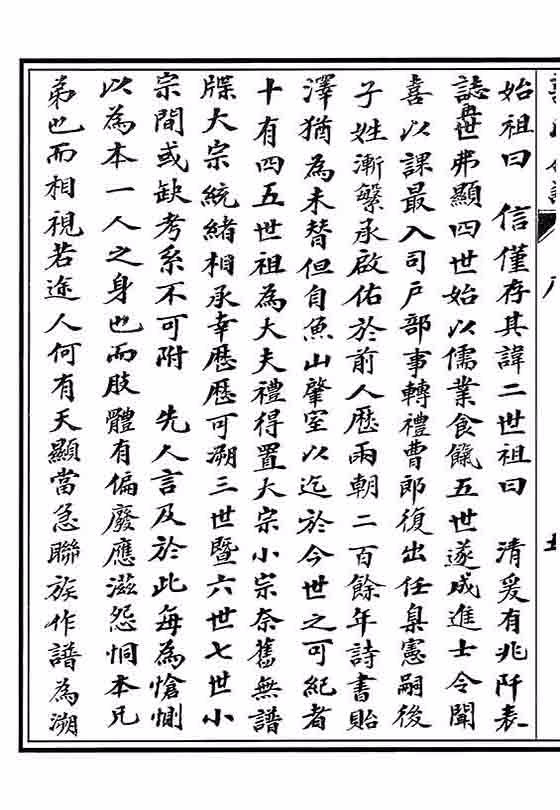 始祖曰　信僅存其諱二世祖曰　清爰有兆阡表
誌三世弗顯四世始以儒業食餼五世遂成進士令聞
喜以課最入司戶部事轉禮曹郎復出任臬憲嗣後
子姓漸繁承啟佑於前人歷兩朝二百餘年詩書貽
澤猶為未替但自魚山肇室以迄於今世之可紀者
十有四五世祖為大夫禮得置大宗小宗奈舊無譜
牒大宗統緒相承幸歷歷可溯三世暨六世七世小
宗間或缺考系不可附　先人言及於此每為愴惻
以為本一人之身也而肢體有偏廢應滋怨恫本兄
弟也而相視若途人何有天顯當急聯族作譜為溯